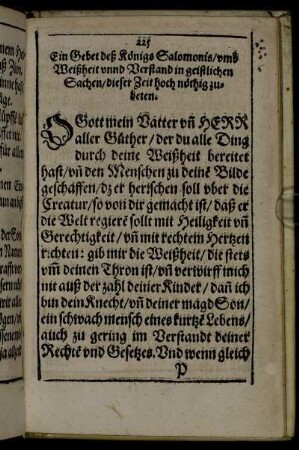 225
Ein Gebet deß Königs Salomonis/vmb
Weißheit vnnd Verstand in geistlichen
Sachen/dieser Zeit hoch nöthig zu-
beten.
O Gott mein Vatter vñ HERR
aller Güther/der du alle Ding
durch deine Weißheit bereitet
hast/vñ den Menschen zu deinē Bilde
geschaffen/dz er herschen soll vber die
Creatur/so von dir gemacht ist/daß er
die Welt regierē sollt mit Heiligkeit vñ
Gerechtigkeit/vñ mit rechtem Hertzen
richten: gib mir die Weißheit/die stets
vm̄ deinen Thron ist/vñ verwirff mich
nit auß der zahl deiner Kinder/dañ ich
bin dein Knecht/vñ deiner magd Son/
ein schwach mensch eines kurtzē Lebens/
auch zu gering im Verstandt deiner
Rechtē vnd Gesetzes. Vnd wenn gleich
P